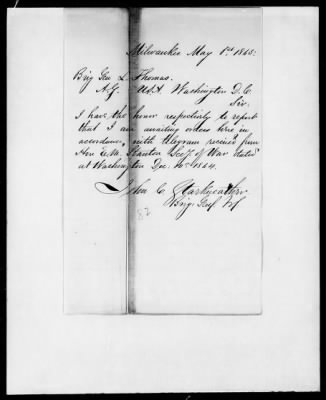 Milwaukee May 1st 1865.
Brig Gen L. Thomas.
A.G. U.S.A Washington D.C.
Sir.
I have the honor respectively to report
that I am awaiting orders here in
accordance with telegram received from
Hon E.M. Stanton Secy of War dated
at Washington Dec. 1864.
John C Starkweather
Brig. Genl Vol
82